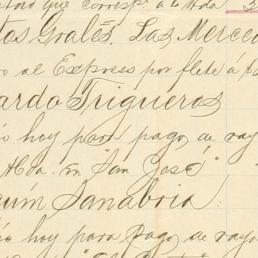 que corresp. a la Hda
tos Grales. Las Merced
al Express por flete á
ardo Trigueros
hoy para pago de ray
Hda. m "San José"
uím Sanabria
io hoy para Pago de ray